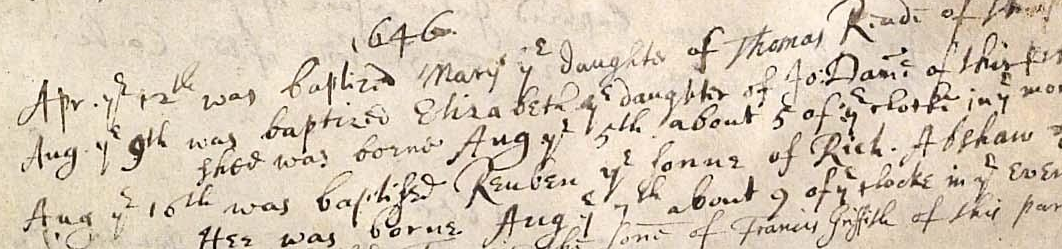 1646.
Apr. yᵉ 12th was baptized Mary yᵉ daughter of Thomas Reade of
Aug. yᵉ 9th was baptized Elizabeth yᵉ daughter of Jo: of this
shee was borne Aug yᵉ 5th about 5 of yᵉ clocke in yᵉ mor
Aug yᵉ 16th was baptised Reuben yᵉ sonne of Rich. Abshaw
Hee was borne Aug yᵉ 7th about 9 of yᵉ clocke in yᵉ even
sone of Francis Griffith of this par